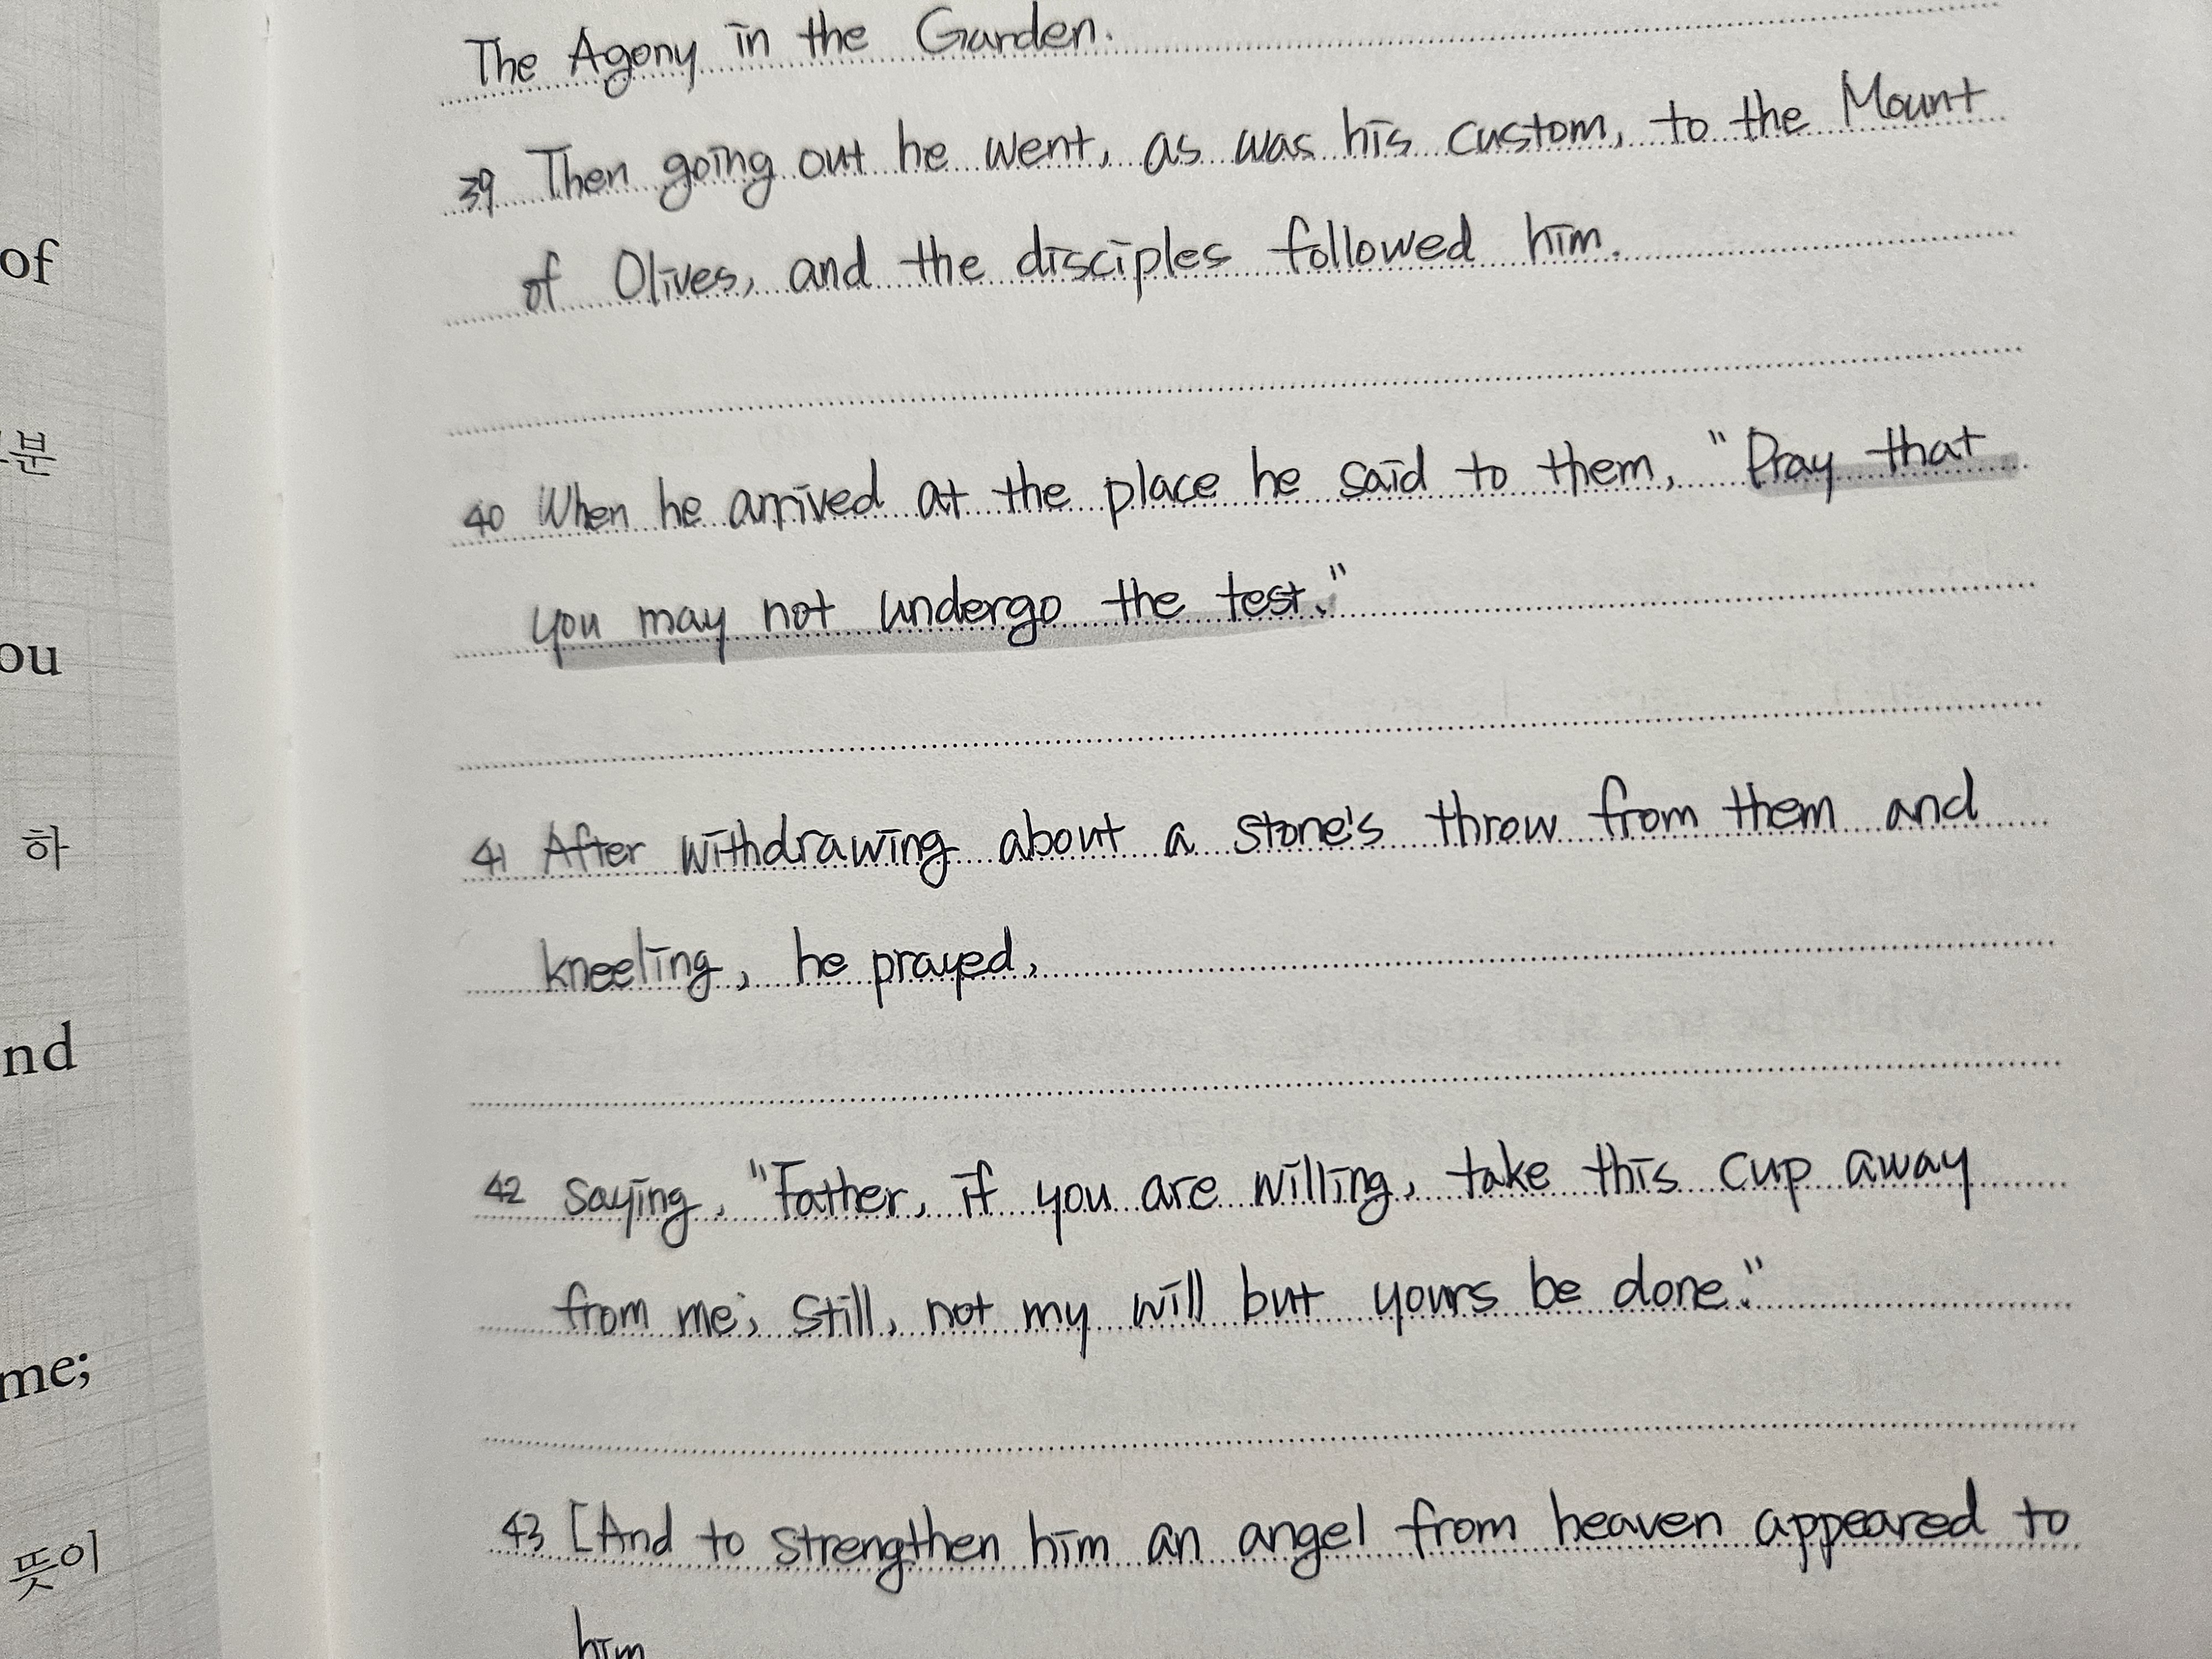 of
분
ou
하
nd
me;
뜻이
The Agony in the Garden.
39 Then going out he went, as was his custom, to the Mount
of Olives, and the disciples followed him.
40 When he arrived at the place he said to them, "Pray that
you may not undergo the test."
41 After withdrawing about a stone's throw from them and
kneeling, he prayed,
42 saying, "Father, if you are willing, take this cup away
from me; still, not my will but yours be done."
43 [And to strengthen him an angel from heaven appeared to
him